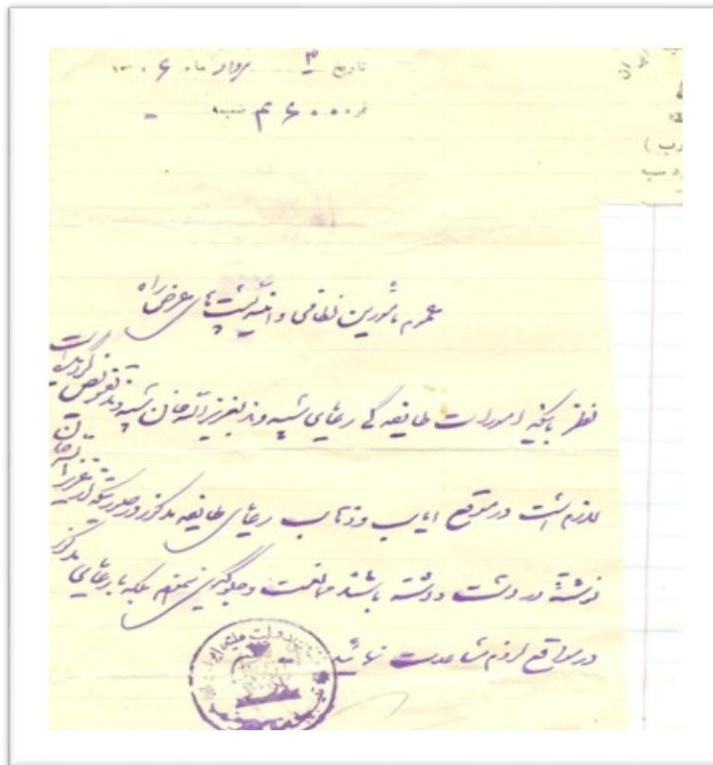 تاریخ ۳ مرداد ماه ۱۳۰۶
نمره ۶۰۰۰ ضمیمه
عموم مأمورین نظامی و امنیه پست های عرض راه
نظر باینکه امورات طایفه گی رعایای شیه وند بعزیزاله خان شیه وند تفویض گردیده است
لازم است در موقع ایاب و ذهاب رعایای طایفه مذکور در صورتیکه از عزیزاله خان
نوشته در دست داشته باشند ممانعت و جلوگیری ننموده بلکه با رعایای مذکور
در مواقع لزوم مساعدت نمائید